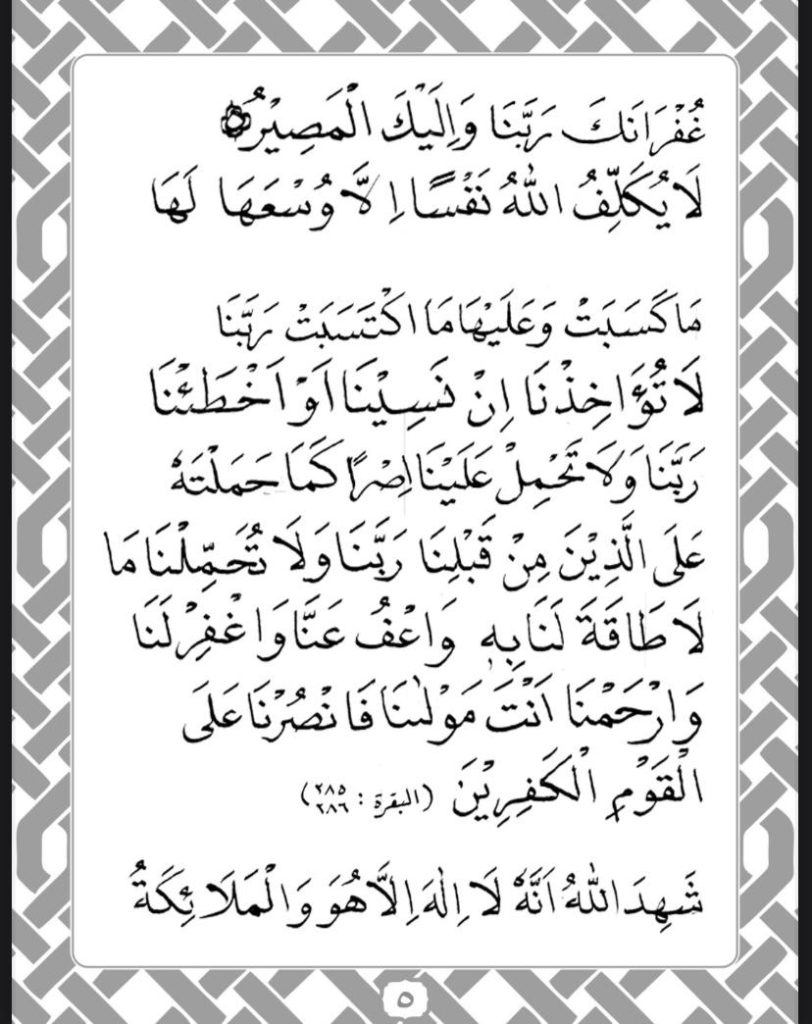 غُفْرَانَكَ رَبَّنَا وَاِلَيْكَ الْمَصِيْرُ
لَا يُكَلِّفُ اللّٰهُ نَفْسًا اِلَّا وُسْعَهَا لَهَا
مَا كَسَبَتْ وَعَلَيْهَا مَا اكْتَسَبَتْ رَبَّنَا
لَا تُؤَاخِذْنَا اِنْ نَسِيْنَا اَوْ اَخْطَئْنَا
رَبَّنَا وَلَا تَحْمِلْ عَلَيْنَا اِصْرًا كَمَا حَمَلْتَهٗ
عَلَى الَّذِيْنَ مِنْ قَبْلِنَا رَبَّنَا وَلَا تُحَمِّلْنَا مَا
لَا طَاقَةَ لَنَا بِهٖ وَاعْفُ عَنَّا وَاغْفِرْ لَنَا
وَارْحَمْنَا اَنْتَ مَوْلٰىنَا فَانْصُرْنَا عَلَى
الْقَوْمِ الْكَفِرِيْنَ (البقرة : ٢٨٥ ٢٨٦)
شَهِدَ اللّٰهُ اَنَّهٗ لَا اِلٰهَ اِلَّا هُوَ وَالْمَلَائِكَةُ
٥